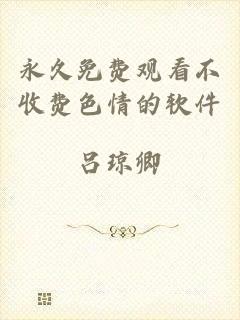 永久免费观看不
收费色情的软件
吕琼卿